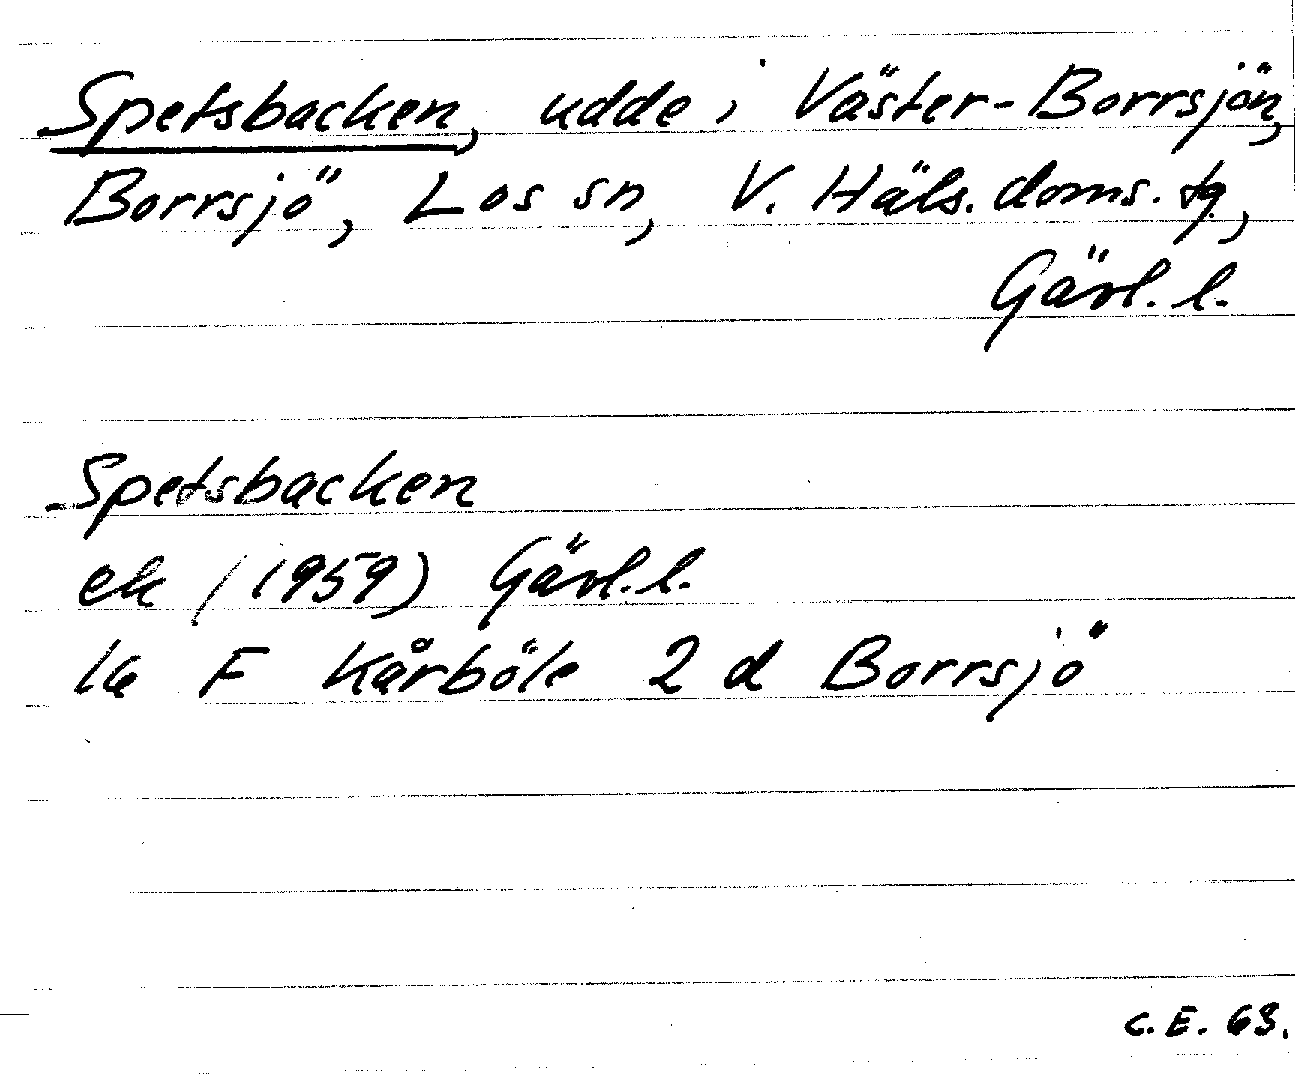 Spetsbacken, udde i Väster-Borrsjön,
Borrsjö, Los sn, V. Häls. doms. tg,
Gävl. l.
Spetsbacken
ek (1959) Gävl. l.
16 F Kårböle 2 d Borrsjö
C. E. 63.